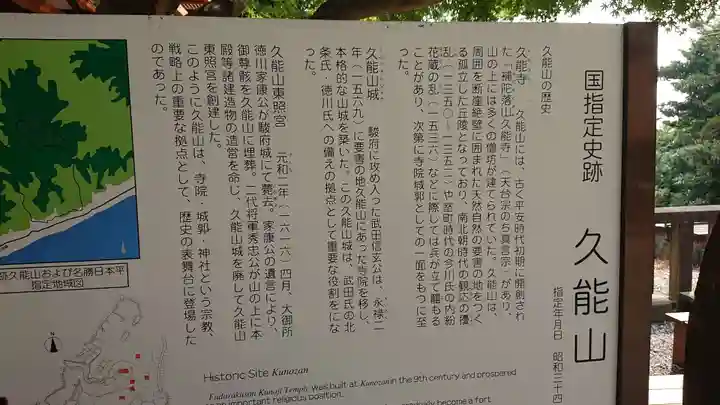 国指定史跡 久能山
指定年月日 昭和三十四
久能山の歴史
久能寺 久能山には、古く平安時代初期に開創され
た「補陀落山久能寺」(天台宗のち真言宗)があり、
山の上には多くの僧坊が建てられていた。久能山は、
周囲を断崖絶壁に囲まれた天然自然の要害の地をつく
る孤立した丘陵となっており、南北朝時代の観応の擾
乱(一三五〇―一三五二)や室町時代の今川氏の内紛
花蔵の乱(一五三六)などに際しては兵が立て籠もる
ことがあり、次第に寺院城郭としての一面をもつに至
った。
久能山城 駿府に攻め入った武田信玄公は、永禄十二
年(一五六九)に要害の地久能山にあった寺院を移し、
本格的な山城を築いた。この久能山城は、武田氏の北
条氏・徳川氏への備えの拠点として重要な役割をにな
った。
久能山東照宮 元和二年(一六一六)四月、大御所
徳川家康公が駿府城にて薨去。家康公の遺言により、
御尊骸を久能山に埋葬。二代将軍秀忠公が山の上に本
殿等諸建造物の造営を命じ、久能山城を廃して久能山
東照宮を創建した。
このように久能山は、寺院・城郭・神社という宗教、
戦略上の重要な拠点として、歴史の表舞台に登場した
のであった。
久能山および名勝日本平
指定地域図
Historic Site Kunozan
Fudarakusan Kunoji Temple, was built at Kunozan in the 9th century and prospered
important religious position.
become a fort